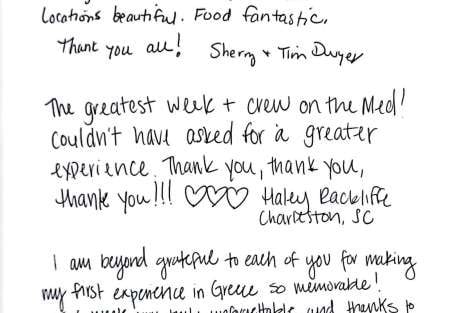 Locations beautiful. Food fantastic.
Thank you all! Sherry + Tim Dwyer
The greatest week + crew on the Med!
Couldn't have asked for a greater
experience. Thank you, thank you,
thank you!!! ♡♡♡ Haley Rackliffe
Charleston, SC
I am beyond grateful to each of you for making
my first experience in Greece so memorable!
week truly unforgettable and thanks to